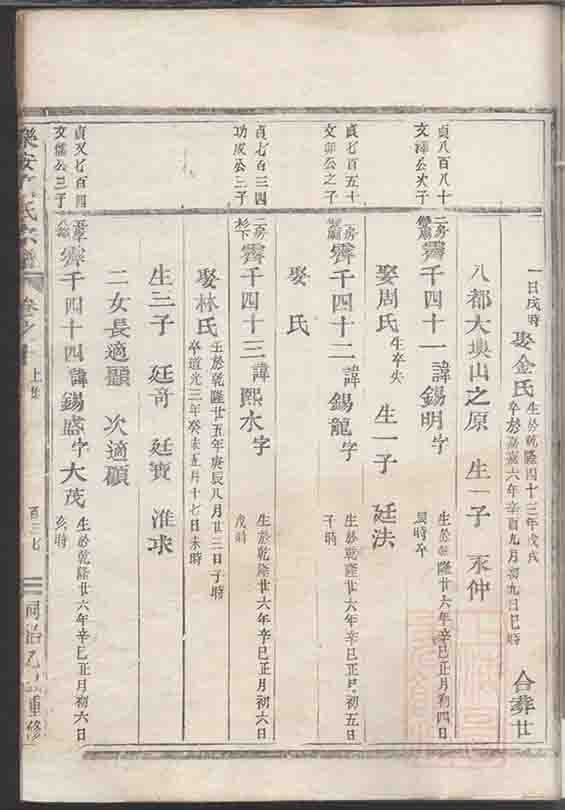 一日戌時
娶金氏
生於乾隆四十三年戊戌
卒於嘉慶六年辛酉九月初九日巳時
合葬廿
八都大塽山之原 生一子 永仲
貞八百八十
文澤公次子
二房
霽千四十一諱錫明字
生於乾隆廿六年辛巳正月初四日
辰時卒
娶周氏
生卒失
生一子 廷法
貞七百五十
文卯公之子
二房
霽千四十二諱錫龍字
生於乾隆廿六年辛巳正月初五日
子時
娶 氏
貞七百三四
功成公三子
二房
霽千四十三諱熙水字
生於乾隆廿六年辛巳正月初六日
戌時
娶林氏
生於乾隆廿五年庚辰八月廿三日子時
卒道光三年癸未五月十七日未時
生三子 廷奇 廷寶 淮求
二女長適顯 次適碩
貞又七百四
文儒公三子
霽千四十四諱錫盛字大茂
生於乾隆廿六年辛巳正月初六日
亥時
樂安 氏宗譜 卷之十 上集 百三七 同治乙丑重修